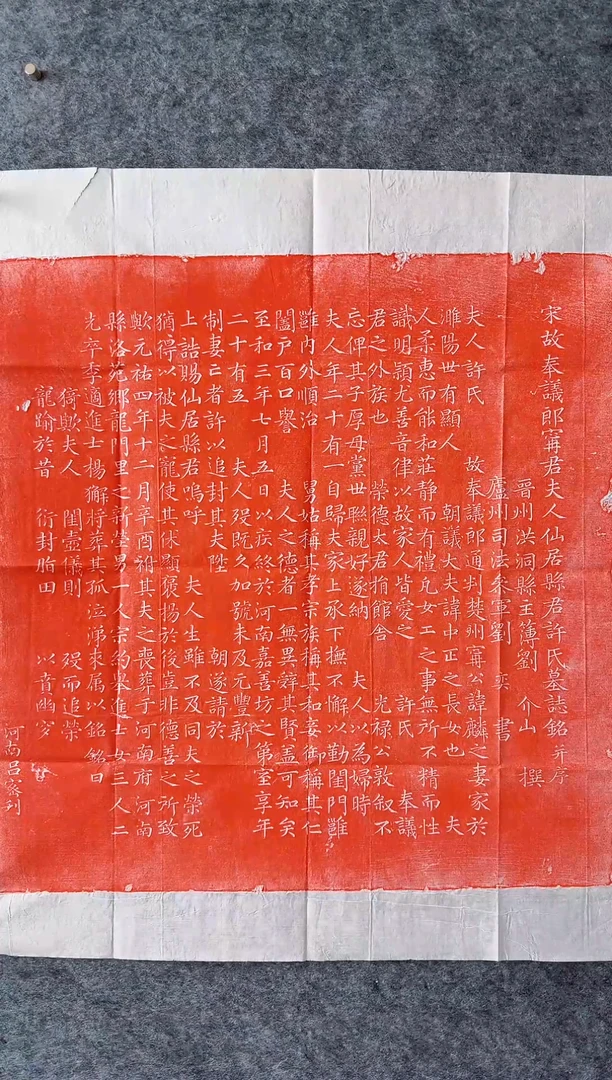 宋故奉議郎甯君夫人仙居縣君許氏墓誌銘并序
晉州洪洞縣主簿劉 介山 撰
廬州司法叅軍劉 奕 書
夫人許氏 故奉議郎通判楚州甯公諱麟之妻家於
濉陽世有顯人 朝議大夫諱中正之長女也 夫
人柔惠而能和莊静而有禮凡女工之事無所不精而性
識明頴尤善音律以故家人皆愛之 許氏 奉議
君之外族也 榮德太君捐館舎 光禄公敦叙不
忘俾其子厚母黨世㬰親好遂納 夫人以為婦時
夫人年二十有一自歸夫家上承下撫不懈以勤閨門雖
雖内外順治 舅姑稱其孝宗族稱其和妾御稱其仁
闔户百口譽 夫人之德者一無異辤其賢盖可知矣
至和三年七月五日以疾終於河南嘉善坊之第室享年
二十有五 夫人殁既久加號未及元豐新
制妻亡者許以追封其夫陞 朝遂請於
上誥賜仙居縣君嗚呼 夫人生雖不及同夫之榮死
猶得以被夫之寵使其伏顯褒揚於後豈非德善之所致
歟元祐四年十二月辛酉祖其夫之喪葬于河南府河南
縣洛苑鄉龍門里之新塋男一人宗約舉進士女三人二
尤卒李適進士楊獬将葬其孤泣涕來属以銘銘曰
猗歟夫人 閨壼儀則 殁而追榮
寵踰於昔 衍封胙田 以音幽穸
河南吕齊刋